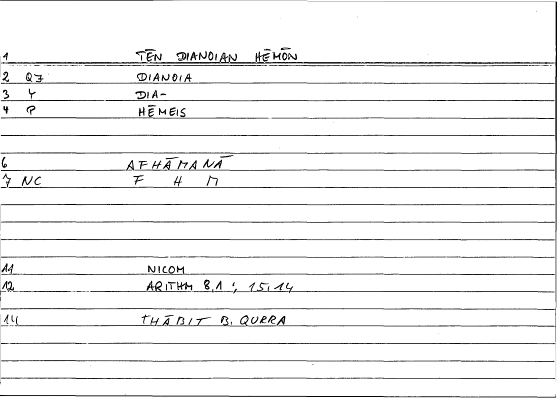 1 TĒN DIANOIAN HĒMŌN
2 QJ DIANOIA
3 Y DIA-
4 P HĒMEIS
6 AFHĀMANĀ
7 NC F H M
11 NICOM
12 ARITHM 8,1 ; 15,14
14 THĀBIT B. QURRA